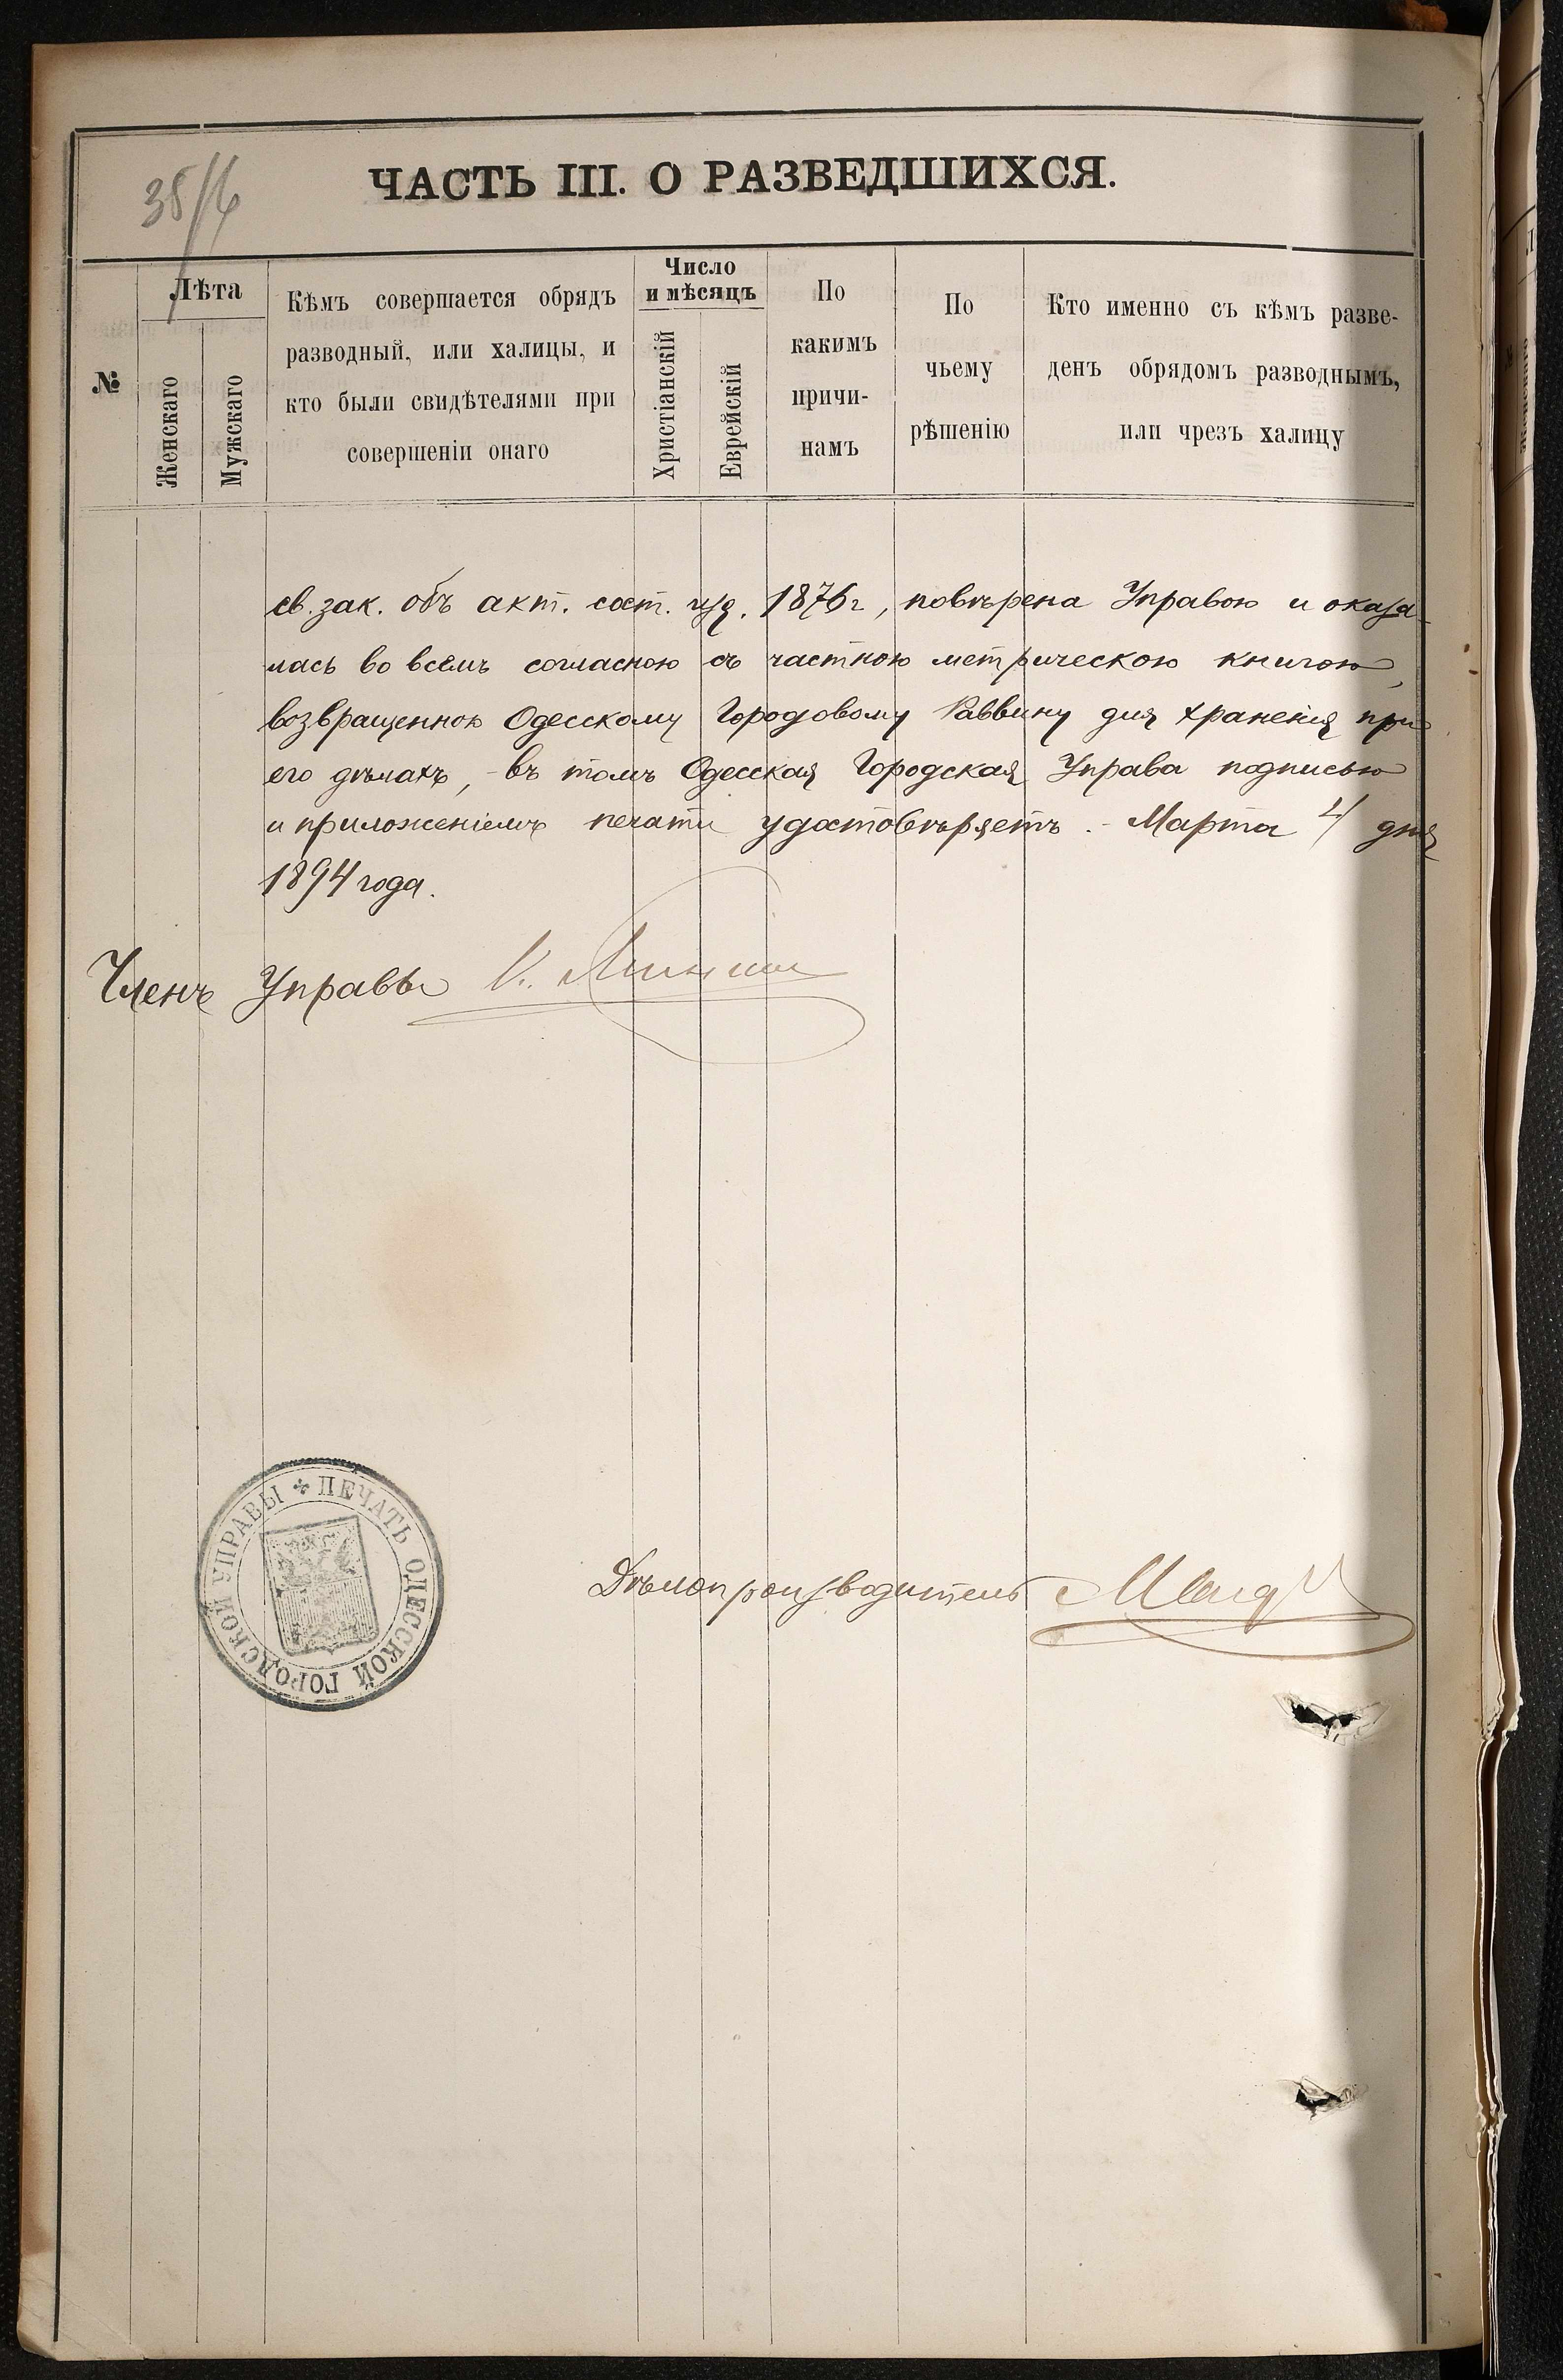 35/6
ЧАСТЬ III. О РАЗВЕДШИХСЯ.
№
Лѣта
Женскаго
Мужскаго
Кѣмъ совершается обрядъ
разводный, или халицы, и
кто были свидѣтелями при
совершеніи онаго
Число
и мѣсяцъ
Христіанскій
Еврейскій
По
какимъ
причи-
намъ
По
чьему
рѣшенію
Кто именно съ кѣмъ разве-
денъ обрядомъ разводнымъ,
или чрезъ халицу
св. зак. объ акт. сост. изд. 1876 г, повѣрена Управою и оказа-
лась во всемъ согласною съ частною метрическою книгою,
возвращенною Одесскому Городовому Раввину для храненія при
его дѣлахъ, - въ томъ Одесская Городская Управа подписью
и приложеніемъ печати удостовѣряетъ. - Марта 4 дня
1894 года.
Членъ Управы
ПЕЧАТЬ ОДЕССКОЙ ГОРОДСКОЙ УПРАВЫ
Дѣлопроизводитель